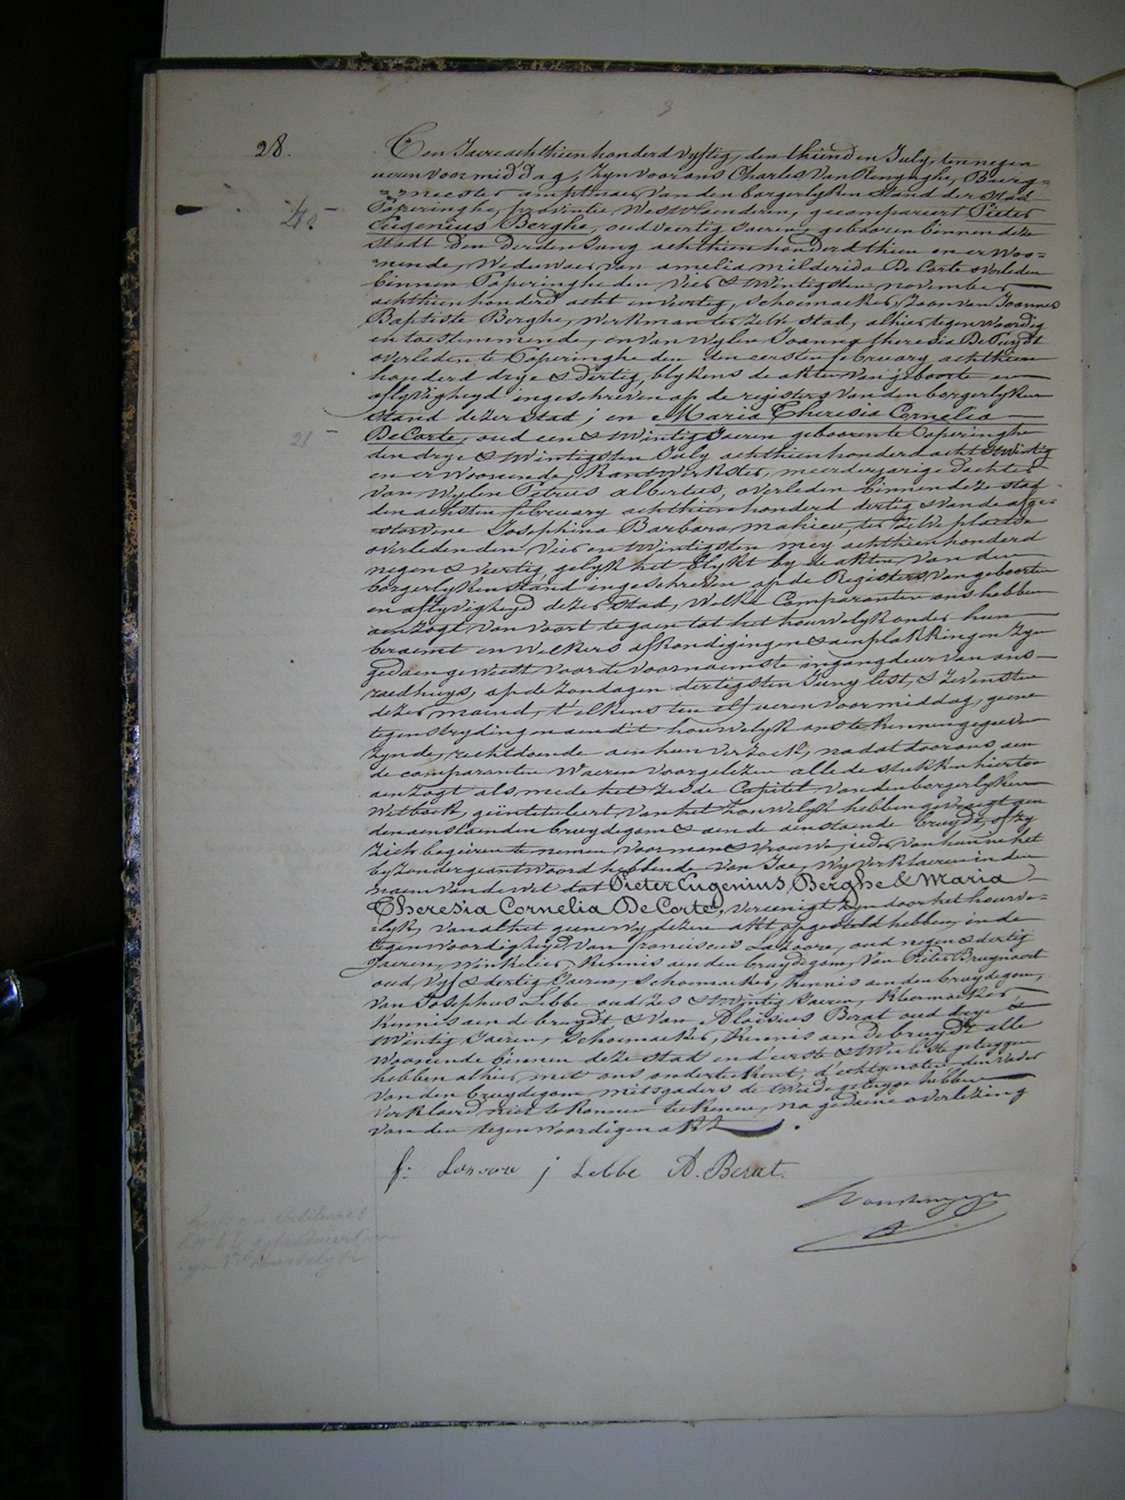 3
28.
Een Jaere achthien honderd vyftig, den thienden July, ten negen
ueren voormiddag, Zyn voor ons Charles Van Renynghe, Burg=
=meester amptenaer van den borgerlyken stand der stad
Poperinghe, provintie Westvlaenderen, gecompareert Pieter
40
Eugenius Berghe, oud veertig jaeren, gebooren binnen deze
stadt den derden Juny achthien honderd thien en er woo=
=nende, Weduwaer van amelia milderida De Corte overleden
binnen Poperinghe den vier & twintigsten november
achthien honderd acht en veertig, schoemaeker, Zoon van Joannes
Baptiste Berghe, werkman ter zelve stad, alhier tegenwoordig
en toestemmende, en van wylen Joanna theresia De Puydt
overleden te Poperinghe den eersten february achthien
honderd drye & dertig, blykens de akten van geboorte en
aflyvigheyd ingeschreven op de registers van den borgerlyken
stand dezer stad; en Maria Theresia Cornelia
21
De Corte, oud een & twintig Jaeren gebooren te Poperinghe
den drye & twintigsten July achthien honderd acht & twintig
en er woonende, Kantwerkster, meerderjarige dochter
van wylen Petrus albertus, overleden binnen deze stad
den achsten february achthien honderd dertig & van de afge=
=storvene Josephina Barbara mahieu, ter zelve plaetse
overleden den vier en twintigsten mey achthien honderd
negen & veertig, gelyk het blykt by de akten van den
borgerlyken stand ingeschreven op de Registers van geboorten
en aflyvigheyd dezer stad, welke Comparanten ons hebben
aenzogt van voort te gaen tot het houwelyk onder hun
beraemt en welkers afkondigingen & aenplakkingen zyn
gedaen geweest voor de voornaemste ingangdeur van ons
raedhuys, op de zondagen dertigsten Juny lest, & zevensten
dezer maend, t'elkens ten elf ueren voormiddag, geene
tegenstrydingen aen dit houwelyk ons te kennen gegeven
zynde, rechtdoende aen hun verzoek, nadat door ons aen
de comparanten waeren voorgelezen alle de stukken hiertoe
aenzogt als mede het zesde Capitel van den borgerlyken
Wetboek, geintituleert, van het houwelyk hebben gevraegt aen
den aenstaenden bruydegom & aen de aenstaende bruydt, of zy
zich begeeren te nemen voor man & vrouwe, ieder van hunne het
byzonder geantwoord hebbende van Jae, Wy verklaeren in den
naem van de wet dat Pieter Eugenius Berghe & Maria
Theresia Cornelia De Corte, vereenigt zyn door het houwe=
=lyk, van al het geene wy dezen akt opgesteld hebben, in de
tegenwoordigheyd van franciscus Lazoore, oud negen & dertig
Jaeren, winkelier, kennis aen den bruydegom, van Pieter Bruynoort
oud vyf & dertig Jaeren, schoemaeker, kennis aen den bruydegom,
van Josephus Lebbe oud zes & twintig Jaeren, kleermaeker,
kennis aen de bruydt & van Aloisius Berat oud drye &
twintig Jaeren, schoemaeker, kennis aen de bruydt alle
woonende binnen deze stad en d'eerste & twee leste getuygen
hebben alhier met ons onderteekent, d'echtgenoten den vader
van den bruydegom, mitsgaders de tweede getuyge hebben
verklaerd niet te konnen teekenen, na gedaene overlezing
van den tegenwoordigen akt.
f: Lazoore j Lebbe A. Berat.
Vanrenynghe